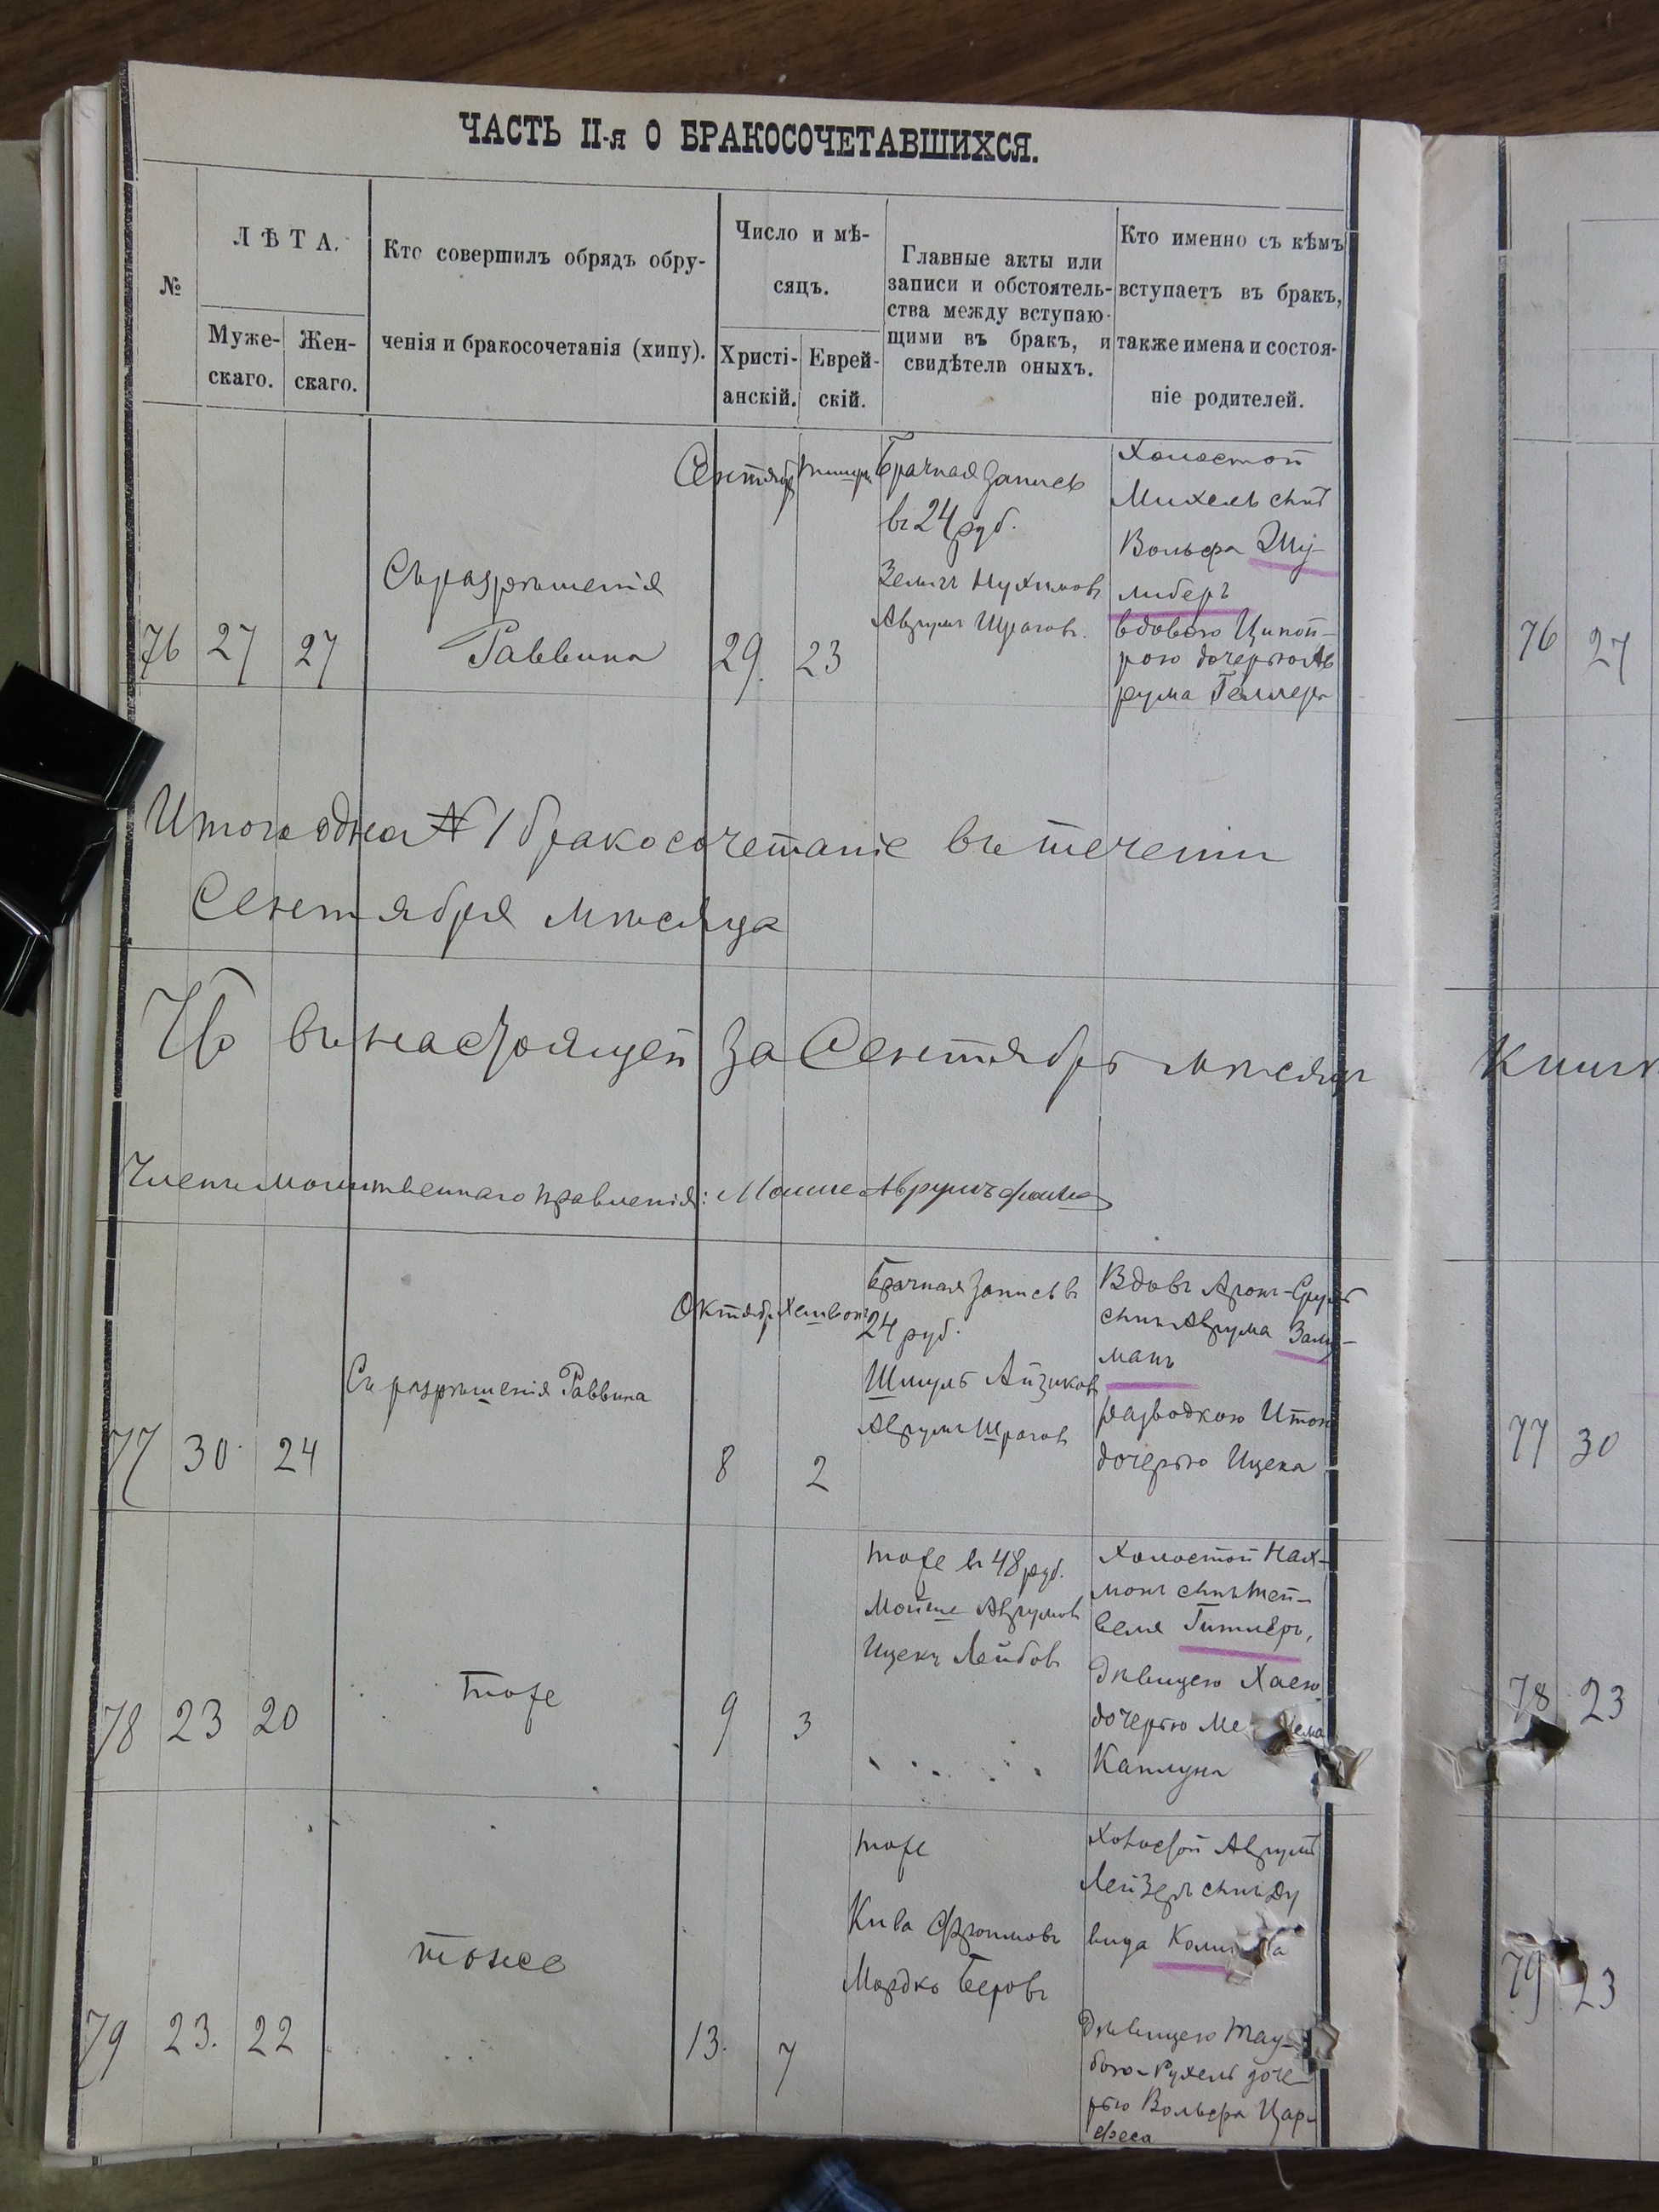 ЧАСТЬ II-я О БРАКОСОЧЕТАВШИХСЯ.
№
ЛѢТА.
Муже-
скаго.
Жен-
скаго.
Кто совершилъ обрядъ обру-
ченія и бракосочетанія (хипу).
Число и мѣ-
сяцъ.
Христі-
анскій.
Еврей-
скій.
Главные акты или
записи и обстоятель-
ства между вступаю-
щими въ бракъ, и
свидѣтели оныхъ.
Кто именно съ кѣмъ
вступаетъ въ бракъ,
также имена и состоя-
ніе родителей.
76
27
27
Съ разрѣшенія
Раввина
Сентябр
29.
Тишри
23
Брачная запись
въ 24 руб.
Зелигъ Нухимовъ
Аврумъ Шраговъ.
Холостой
Михель сынъ
Вольфа
либеръ
вдовою Ципой-
рою дочерью Ав
рума Геллера
76 27
Итого одна № 1 бракосочетаніе въ теченіи
Сентября мѣсяца
въ настоящей за Сентябрь мѣсяцъ
Книг
Членъ молитвеннаго правленія: Мошке
77
30
24
Съ разрѣшенія Раввина
Октябр
8
Хешвон
2
Брачная запись въ
24 руб.
Шмуль Айзиков
Аврумъ Шрагов
Вдовъ Аронъ-Сруль
сынъ Аврума Залц-
манъ
разводкою Итою
дочерью Ицека
77 30
78
23
20
тоже
9
3
тоже въ 48 руб.
Мойше Аврумовъ
Ицекъ Лейбовъ
Холостой Нах-
монъ сынъ Тей-
веля Гитлеръ,
дѣвицею Хаею
дочерью Ме
Каплуна
78 23
79
23.
22
тоже
13.
7
тоже
Кива Фроимовъ
Мордко Беровъ
Холостой Аврумъ
Лейзеръ сынъ Ду
вида
дѣвицею Тау-
бою-Рухель доче-
рью Вольфа Цар-
феса
79 23